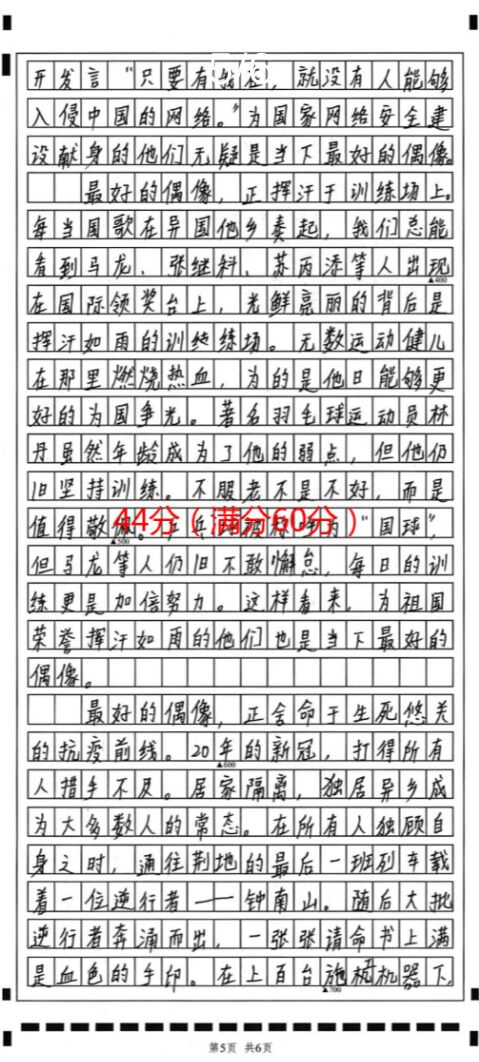 开发言“只要有我在，就没有人能够
入侵中国的网络。”为国家网络安全建
设献身的他们无疑是当下最好的偶像。
最好的偶像，正挥汗于训练场上。
每当国歌在异国他乡奏起，我们总能
看到马龙、张继科、苏丙添等人出现
▲400
在国际领奖台上，光鲜亮丽的背后是
挥汗如雨的训终练场。无数运动健儿
在那里燃烧热血，为的是他日能够更
好的为国争光。著名羽毛球运动员林
丹虽然年龄成为了他的弱点，但他仍
旧坚持训练。不服老不是不好，而是
值得敬佩。乒乓球被称为“国球”，
44分（满分60分）
▲500
但马龙等人仍旧不敢懈怠，每日的训
练更是加倍努力。这样看来，为祖国
荣誉挥汗如雨的他们也是当下最好的
偶像。
最好的偶像，正舍命于生死悠关
的抗疫前线。20年的新冠，打得所有
▲600
人措手不及。居家隔离，独居异乡成
为大多数人的常态。在所有人独顾自
身之时，通往荆地的最后一班列车载
着一位逆行者——钟南山。随后大批
逆行者奔涌而出，一张张请命书上满
是血色的手印。在上百台施机器下，
▲700
第5页 共6页